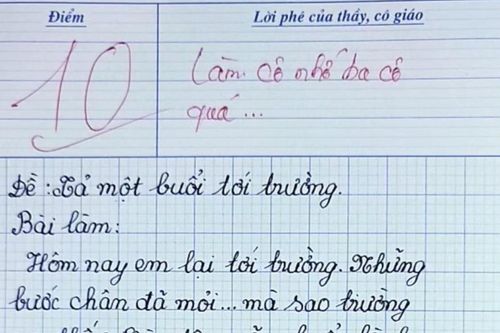 Điểm
Lời phê của thầy, cô giáo
10
Làm cô nhớ ba cô
quá...
Đề: Tả một buổi tới trường.
Bài làm:
Hôm nay em lại tới trường. Những
bước chân đã mỏi... mà sao trường